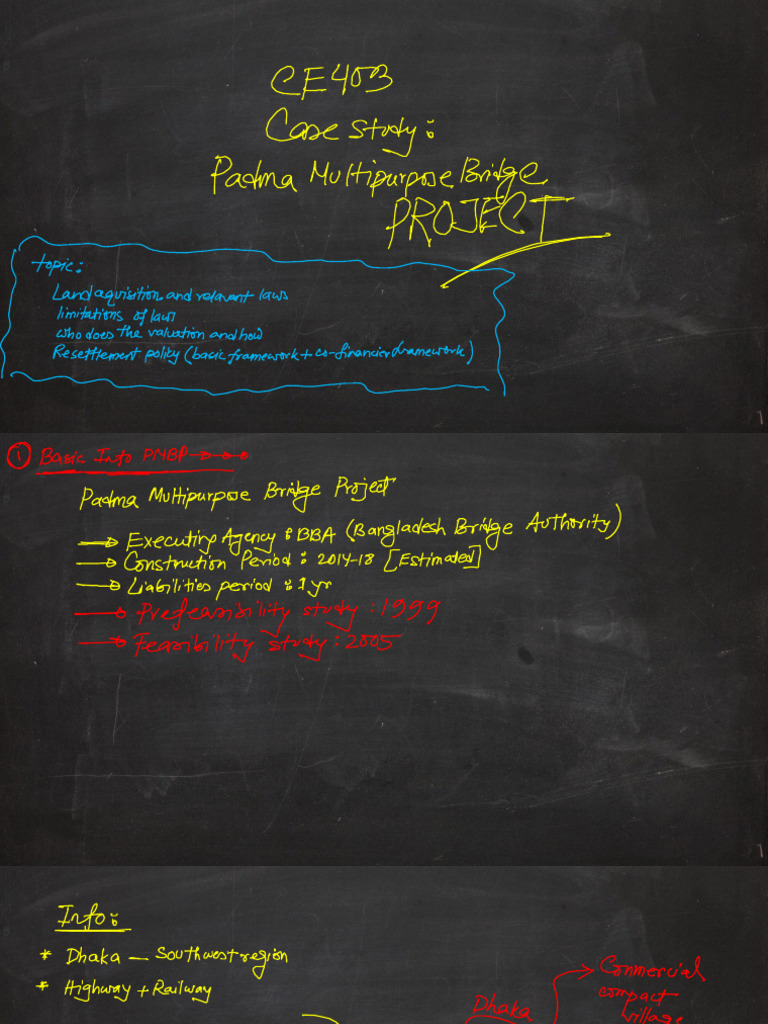 CE403
Case study:
Padma Multipurpose Bridge
PROJECT
topic:
Land aquisition and relavant laws
limitations of law
who does the valuation and how
Resettlement policy (basic framework + co-financier framework)
1
① Basic Info PMBP
Padma Multipurpose Bridge Project
→ Executing Agency : BBA (Bangladesh Bridge Authority)
→ Construction Period : 2014-18 [Estimated]
→ Liabilities period : 1 yr
→ Prefeasibility study : 1999
→ Feasibility study : 2005
1
Info:
* Dhaka — Southwest region
* Highway + Railway
Dhaka
Commercial
compact
village